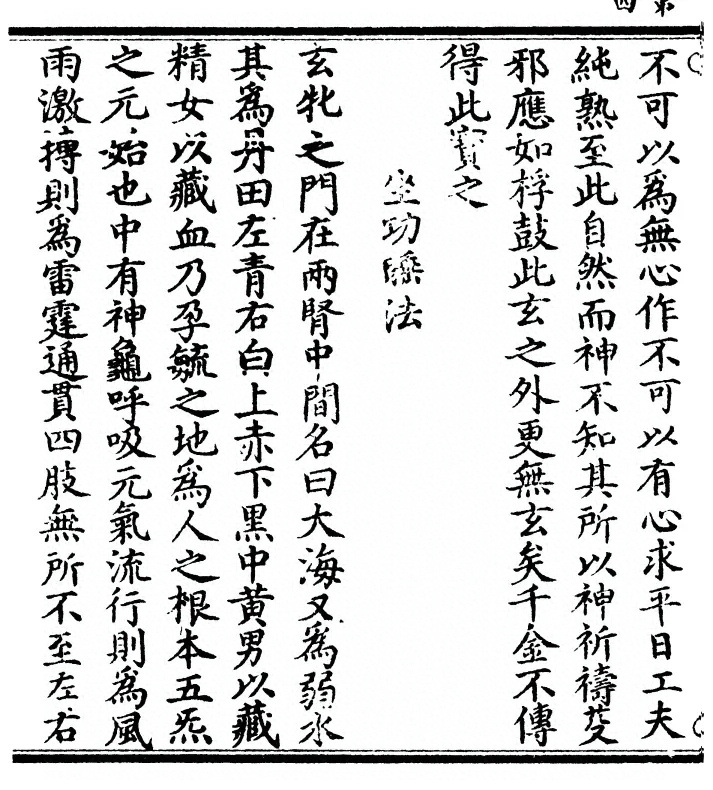 不可以為無心作不可以有心求平日工夫
純熟至此自然而神不知其所以神祈禱
邪應如桴鼓此玄之外更無玄矣千金不傳
得此寳之
坐功
法
玄牝之門在兩腎中間名曰大海又為弱水
其為丹田左青右白上赤下黑中黄男以藏
精女以藏血乃孕毓之地為人之根本五炁
之元始也中有神龜呼吸元氣流行則為風
雨激摶則為雷霆通貫四肢無所不至左右